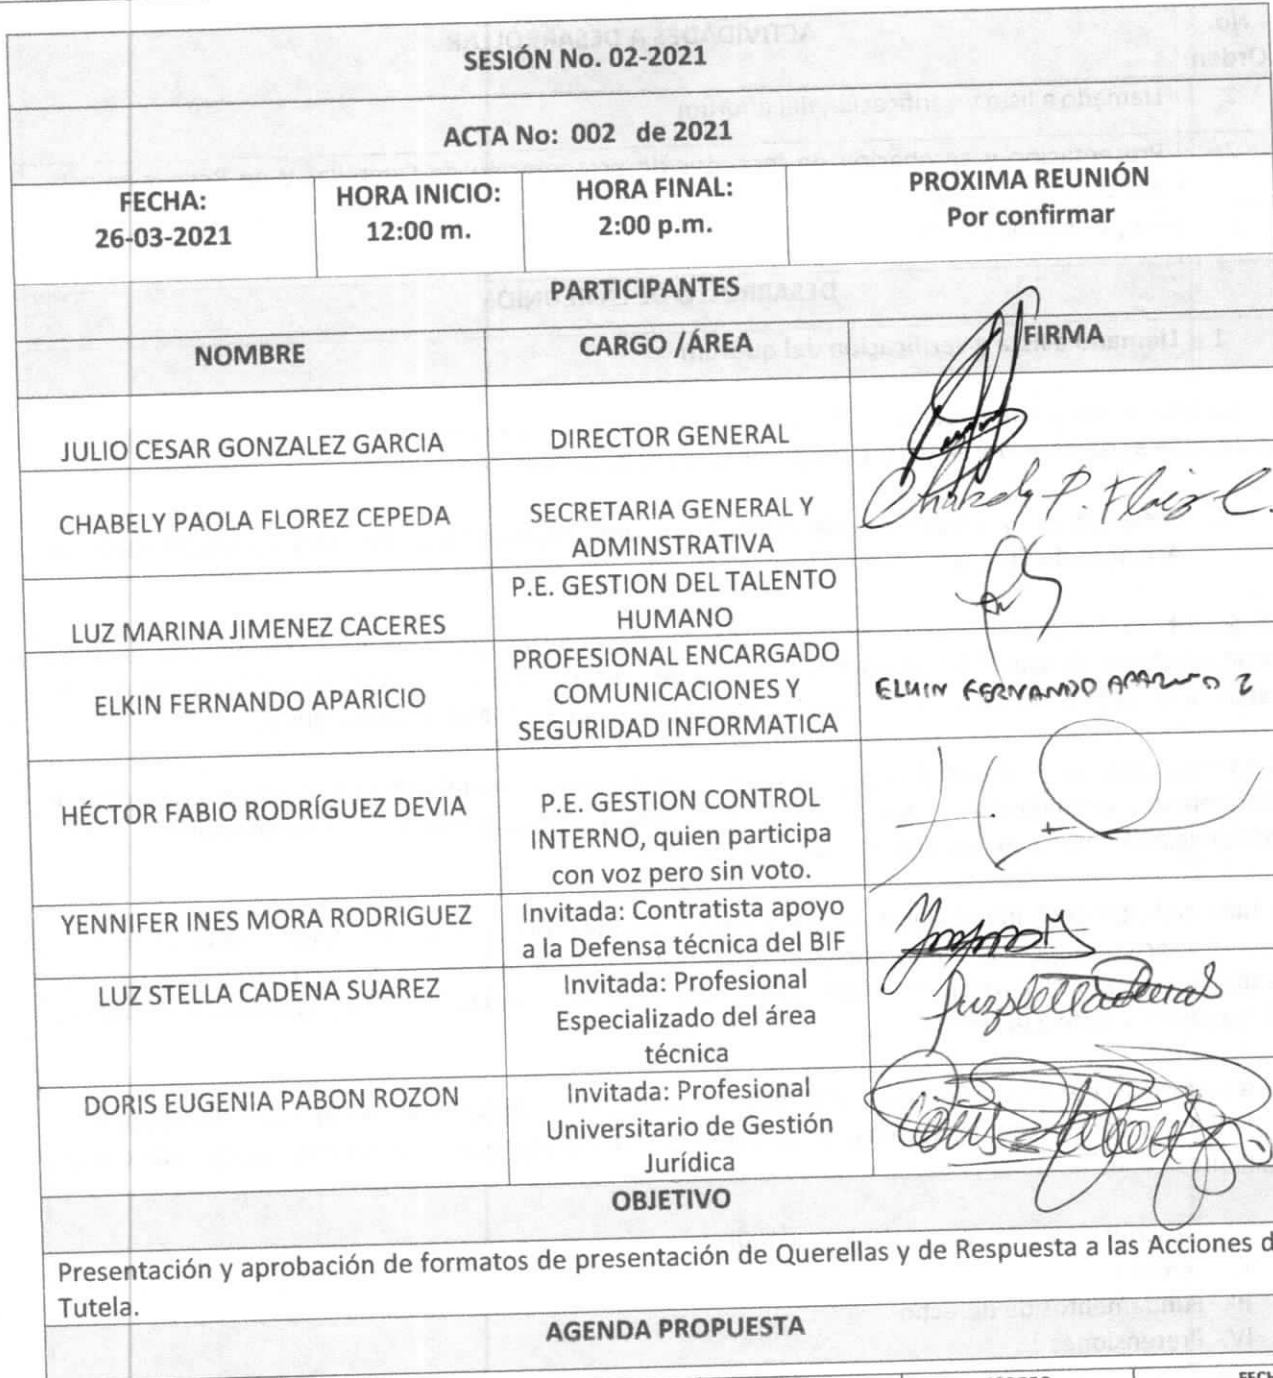 SESIÓN No. 02-2021
ACTA No: 002 de 2021
FECHA:
26-03-2021
HORA INICIO:
12:00 m.
HORA FINAL:
2:00 p.m.
PROXIMA REUNIÓN
Por confirmar
PARTICIPANTES
NOMBRE
CARGO /ÁREA
FIRMA
JULIO CESAR GONZALEZ GARCIA
DIRECTOR GENERAL
CHABELY PAOLA FLOREZ CEPEDA
SECRETARIA GENERAL Y
ADMINSTRATIVA
Chabely P. Florez C.
LUZ MARINA JIMENEZ CACERES
P.E. GESTION DEL TALENTO
HUMANO
ELKIN FERNANDO APARICIO
PROFESIONAL ENCARGADO
COMUNICACIONES Y
SEGURIDAD INFORMATICA
ELKIN FERNANDO APARICIO Z
HÉCTOR FABIO RODRÍGUEZ DEVIA
P.E. GESTION CONTROL
INTERNO, quien participa
con voz pero sin voto.
YENNIFER INES MORA RODRIGUEZ
Invitada: Contratista apoyo
a la Defensa técnica del BIF
LUZ STELLA CADENA SUAREZ
Invitada: Profesional
Especializado del área
técnica
Luzstella Cadena S
DORIS EUGENIA PABON ROZON
Invitada: Profesional
Universitario de Gestión
Jurídica
OBJETIVO
Presentación y aprobación de formatos de presentación de Querellas y de Respuesta a las Acciones d
Tutela.
AGENDA PROPUESTA